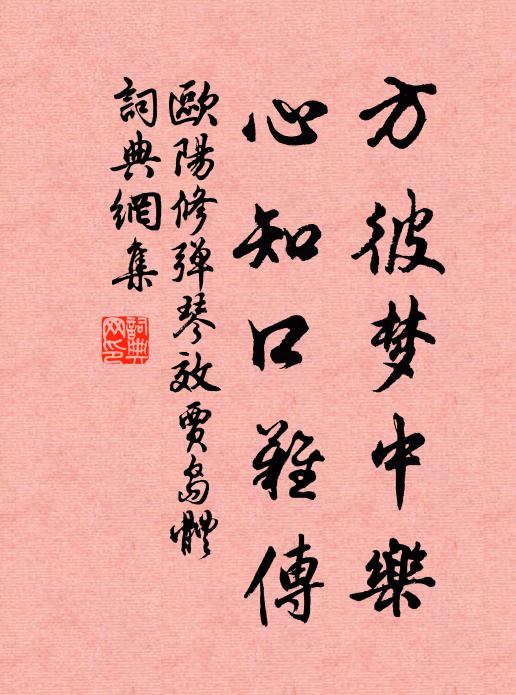 方彼梦中樂
心知口難傳
歐陽修弹琴效賈島體
詞典網集
詞典网印